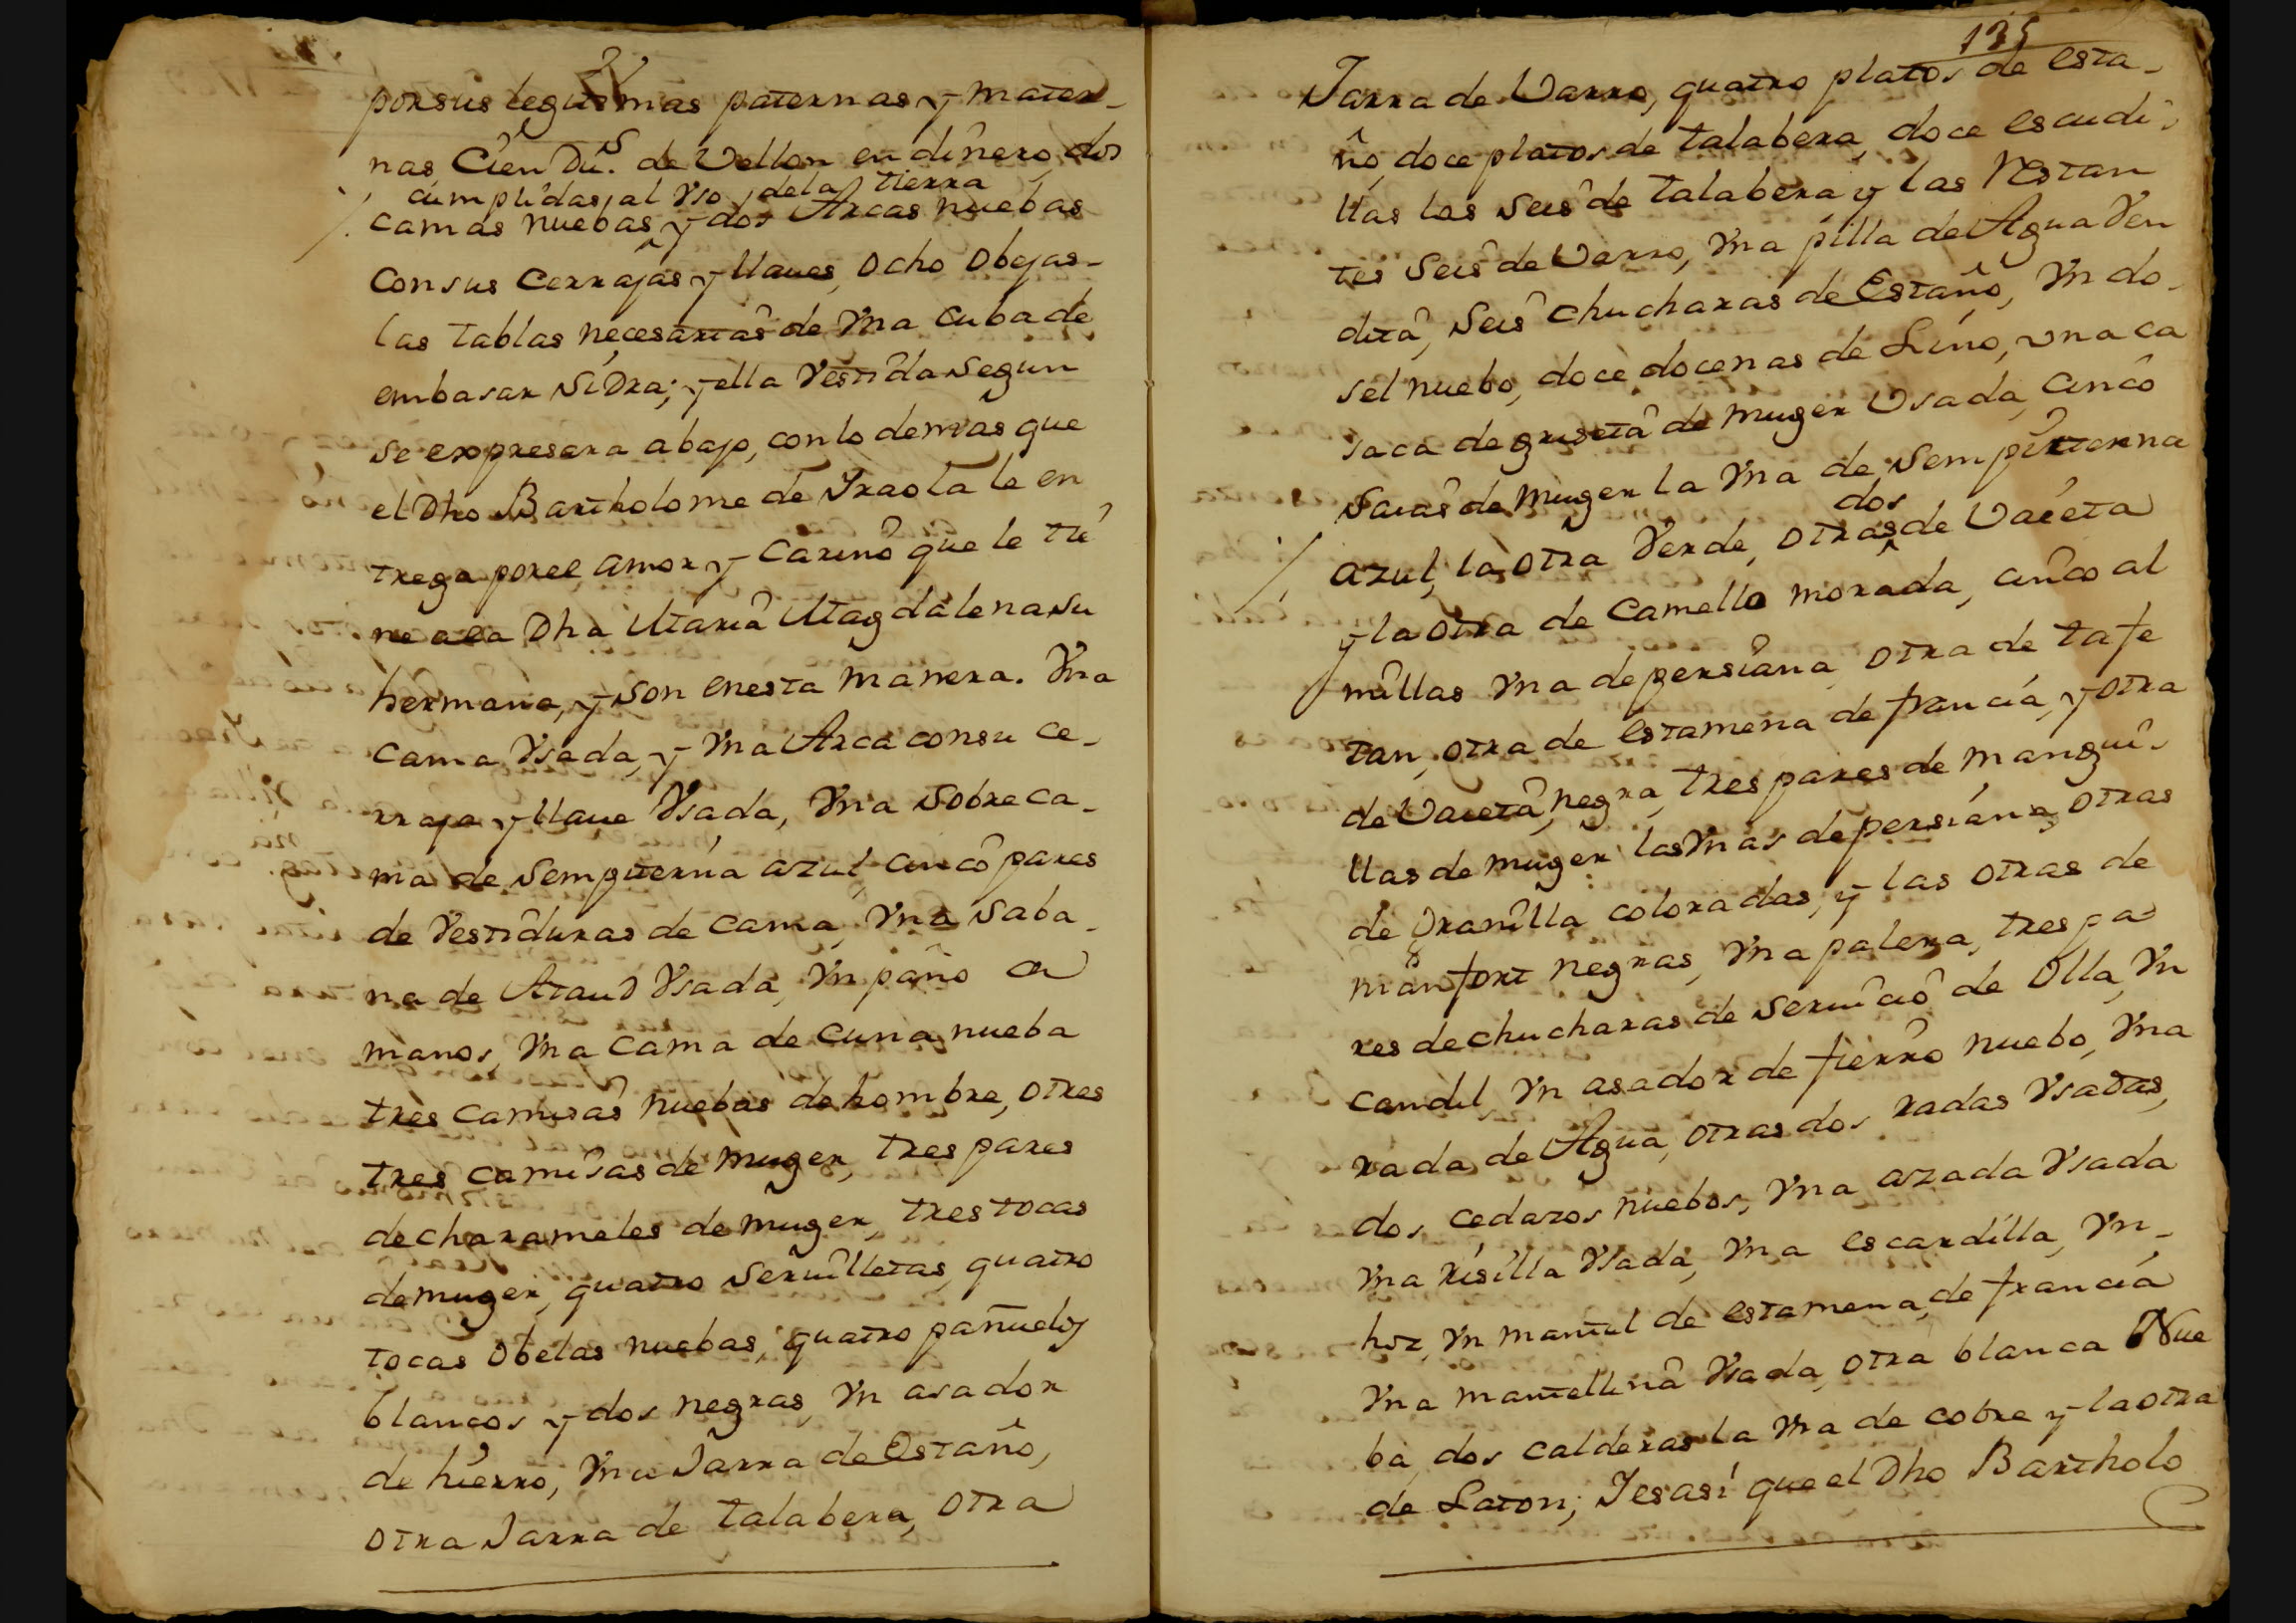 por sus legitimas paternas y mater-
nas, Cien Dus. de Vellon en dinero, dos
cumplidas, al Vso, dela tierra
camas nuebas y dos Arcas nuebas
Con sus Cerrajas y llaues, Ocho Obejas-
las tablas necesarias de Vna Cuba de
embasar SiDra; y ella Vestida Segun
se expresara abajo, con lo demas que
el Dho Bartholome de Yraola le en
trega por el amor y Carino que le tie
ne ala Dha Maria Magdalena su
hermana, y son enesta manera. Vna
Cama Vsada, y Vna Arca con su Ce-
rraja y llaue Vsada, Vna Sobreca-
ma de Sempiterna azul, Cinco pares
de Vestiduras de Cama, Vna Saba-
na de AtauD Vsada, Vn paño a
manos, Vna Cama de Cuna nueba
tres Camisas nuebas de hombre, otres
tres Camisas de muger, tres pares
de charameles de muger, tres tocas
de muger, quatro Seruilletas, quatro
tocas Obelas nuebas, quatro pañuelos
blancos y dos negras, Vn asador
de hierro, Vna Jarra de Estaño,
Otra Jarra de talabera, Otra
125
Jarra de Varro, quatro platos de esta-
ño, doce platos de talabera, doce escudi-
llas las Seis de talabera y las Restan
tes Seis de Varro, Vna pilla de Agua Ven
dita, Seis Chucharas de Estaño, Vn do-
sel nuebo, doce docenas de Lino, Vna ca
saca de griseta de muger Vsada, Cinco
Saias de muger la Vna de Sempiterna
dos
azul, la Otra Verde, Otras de Vaieta
y la Otra de Camello morada, Cinco al
millas Vna de persiana, Otra de tafe
tan, Otra de Estamena de francia, y Otra
de Vaieta negra, tres pares de mangui-
llas de muger las Vnas de persiana, Otras
de Granilla coloradas, y las Otras de
manfort negras, Vna palera, tres pa
res de chucharas de Seruicio de Olla, Vn
Candil, Vn asador de fierro nuebo, Vna
rada de Agua, Otras dos radas Vsadas,
dos Cedazos nuebos, Vna azada Vsada
Vna risilla Vsada, Vna escardilla, Vn-
hoz, Vn mantel de estamena, de francia
Vna mantellina Vsada, Otra blanca Nue
ba, dos Calderas la Vna de cobre y la otra
de Laton; Y es asi que el Dho Bartholo